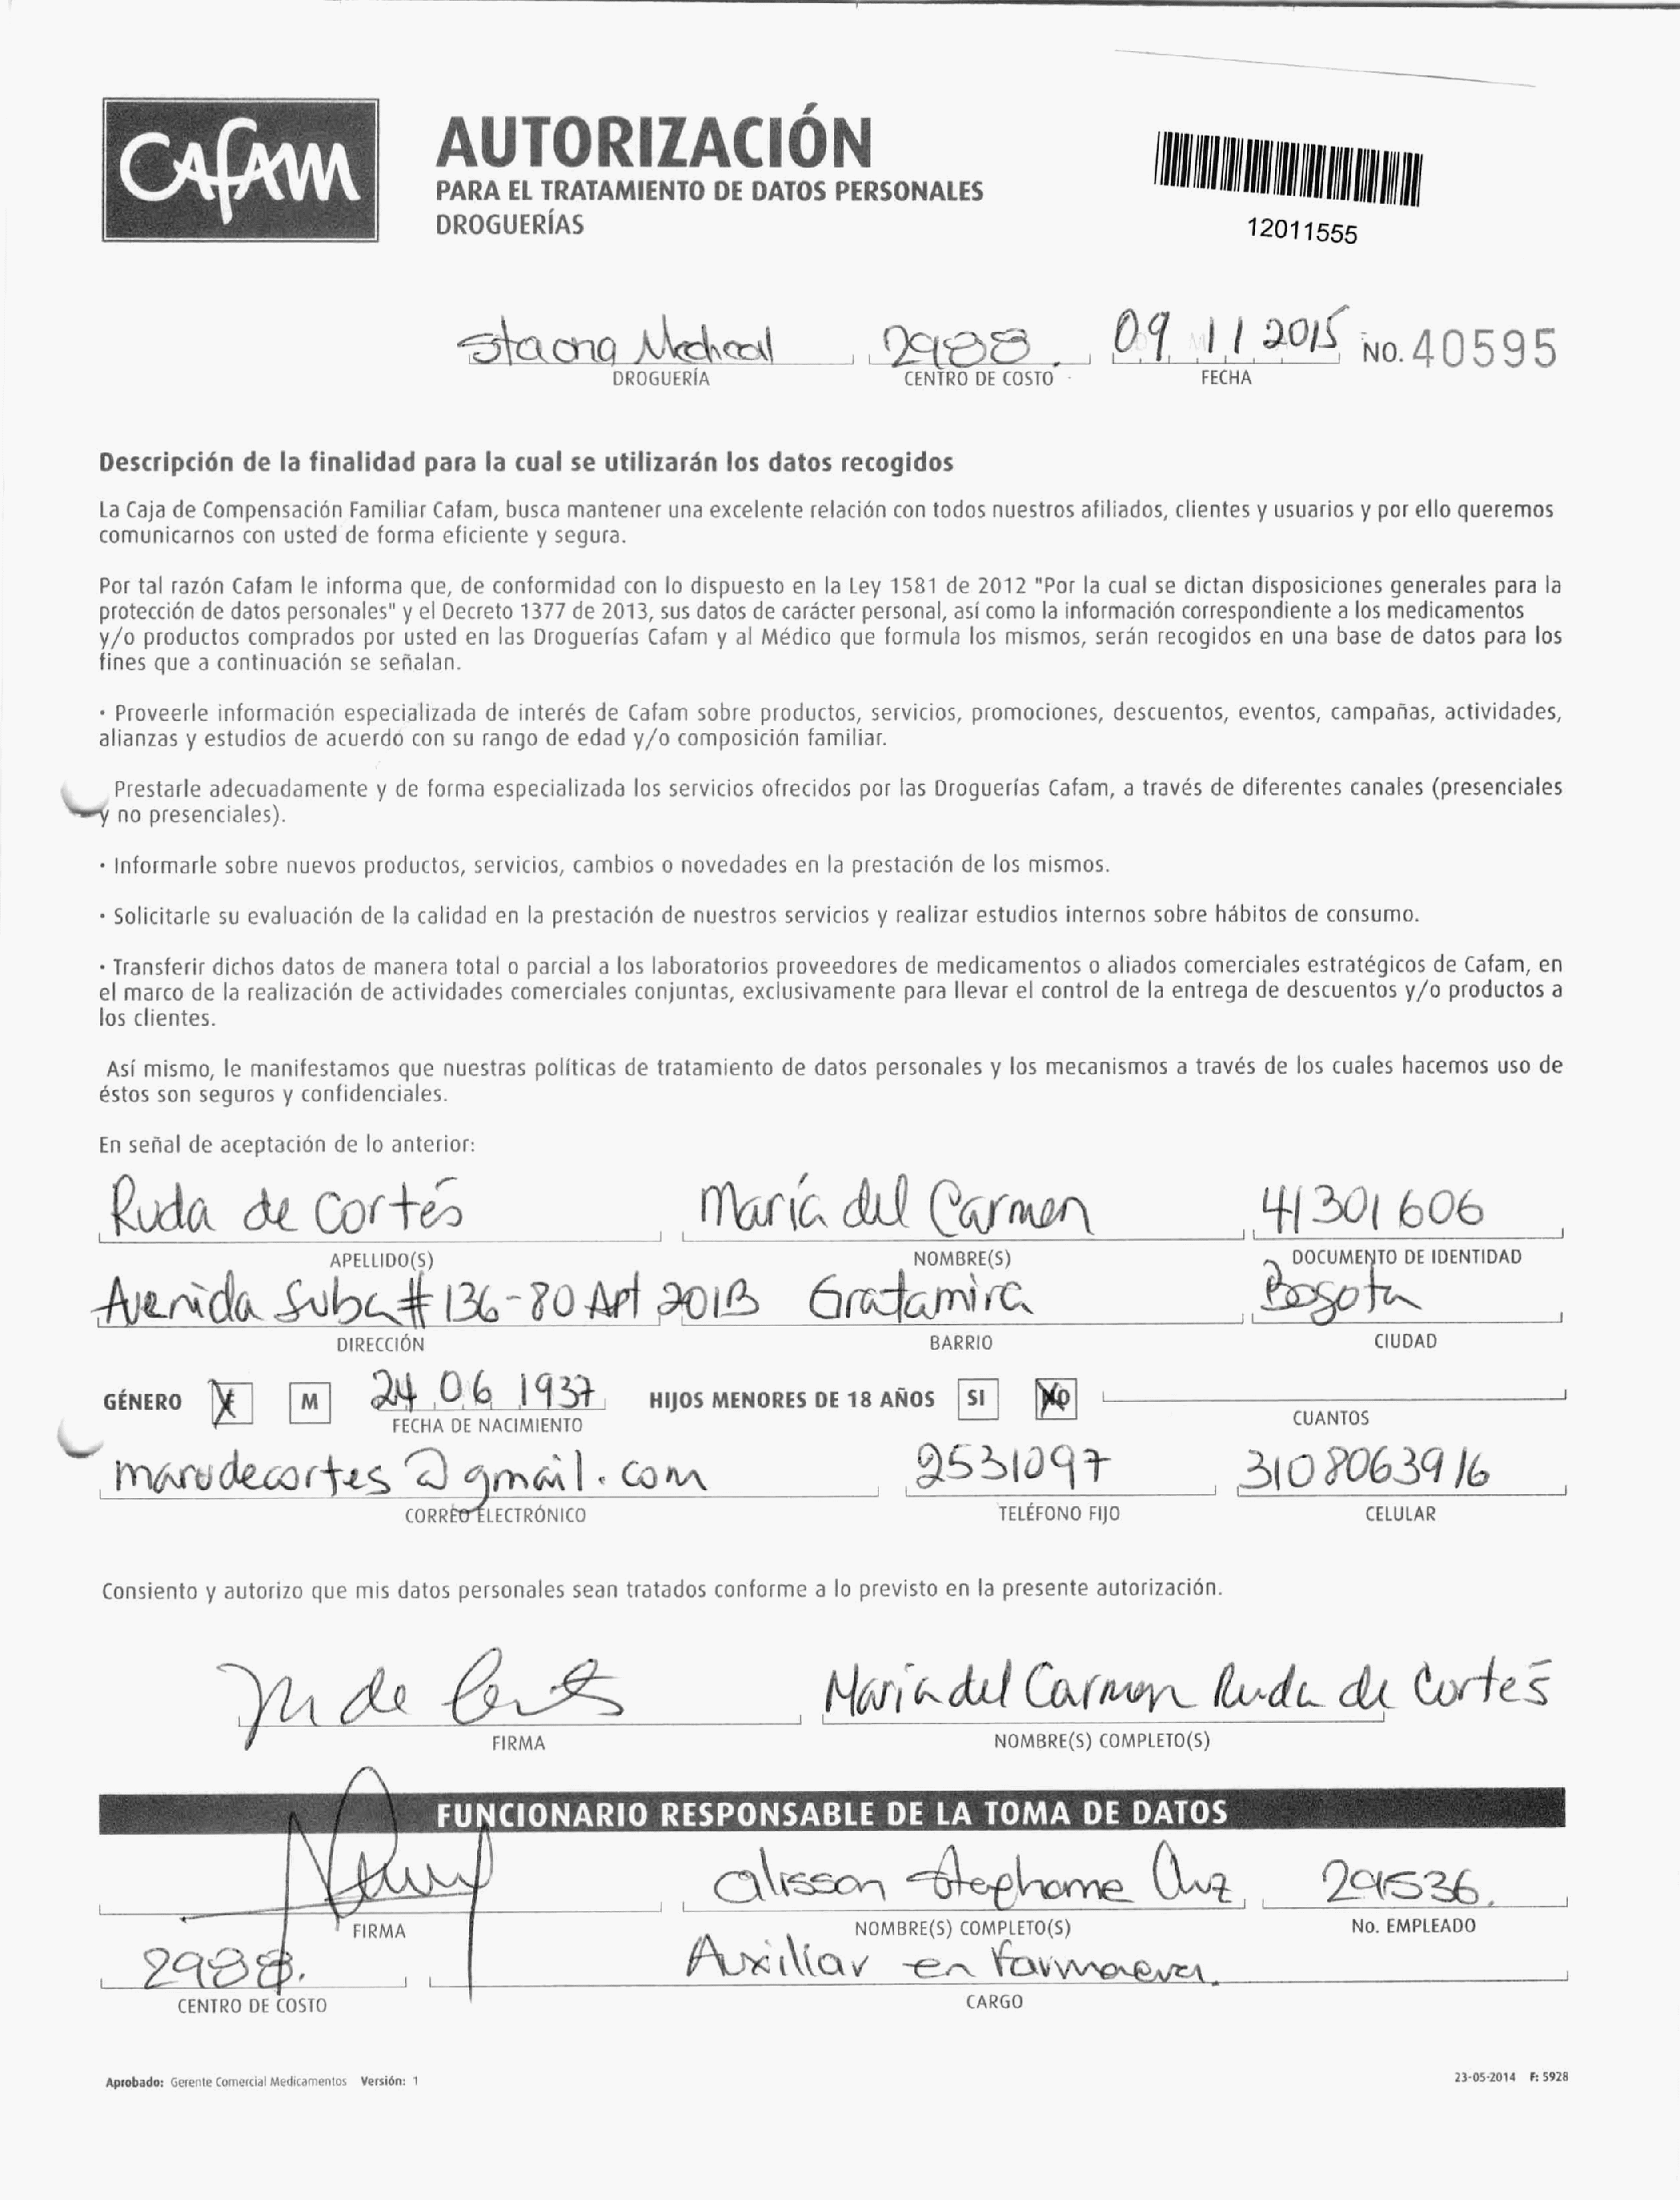 Cafam
AUTORIZACIÓN
PARA EL TRATAMIENTO DE DATOS PERSONALES
DROGUERÍAS
12011555
2988. 09 11 2015 No. 40595
DROGUERÍA CENTRO DE COSTO FECHA
Descripción de la finalidad para la cual se utilizarán los datos recogidos
La Caja de Compensación Familiar Cafam, busca mantener una excelente relación con todos nuestros afiliados, clientes y usuarios y por ello queremos
comunicarnos con usted de forma eficiente y segura.
Por tal razón Cafam le informa que, de conformidad con lo dispuesto en la Ley 1581 de 2012 "Por la cual se dictan disposiciones generales para la
protección de datos personales" y el Decreto 1377 de 2013, sus datos de carácter personal, así como la información correspondiente a los medicamentos
y/o productos comprados por usted en las Droguerías Cafam y al Médico que formula los mismos, serán recogidos en una base de datos para los
fines que a continuación se señalan.
· Proveerle información especializada de interés de Cafam sobre productos, servicios, promociones, descuentos, eventos, campañas, actividades,
alianzas y estudios de acuerdo con su rango de edad y/o composición familiar.
Prestarle adecuadamente y de forma especializada los servicios ofrecidos por las Droguerías Cafam, a través de diferentes canales (presenciales
y no presenciales).
· Informarle sobre nuevos productos, servicios, cambios o novedades en la prestación de los mismos.
· Solicitarle su evaluación de la calidad en la prestación de nuestros servicios y realizar estudios internos sobre hábitos de consumo.
· Transferir dichos datos de manera total o parcial a los laboratorios proveedores de medicamentos o aliados comerciales estratégicos de Cafam, en
el marco de la realización de actividades comerciales conjuntas, exclusivamente para llevar el control de la entrega de descuentos y/o productos a
los clientes.
Así mismo, le manifestamos que nuestras políticas de tratamiento de datos personales y los mecanismos a través de los cuales hacemos uso de
éstos son seguros y confidenciales.
En señal de aceptación de lo anterior:
Ruda de Cortés María del Carmen 41301606
APELLIDO(S) NOMBRE(S) DOCUMENTO DE IDENTIDAD
Avenida Suba # 136-80 Apt 201B Gratamira Bogota
DIRECCIÓN BARRIO CIUDAD
GÉNERO X M 24 06 1937 HIJOS MENORES DE 18 AÑOS SI NO
FECHA DE NACIMIENTO CUANTOS
marudecortes@gmail.com 2531097 3108063916
CORREO ELECTRÓNICO TELÉFONO FIJO CELULAR
Consiento y autorizo que mis datos personales sean tratados conforme a lo previsto en la presente autorización.
María del Carmen Ruda de Cortés
FIRMA NOMBRE(S) COMPLETO(S)
FUNCIONARIO RESPONSABLE DE LA TOMA DE DATOS
alisson 291536.
FIRMA NOMBRE(S) COMPLETO(S) No. EMPLEADO
2988. Auxiliar en
CENTRO DE COSTO CARGO
Aprobado: Gerente Comercial Medicamentos Versión: 1 23-05-2014 F: 5928